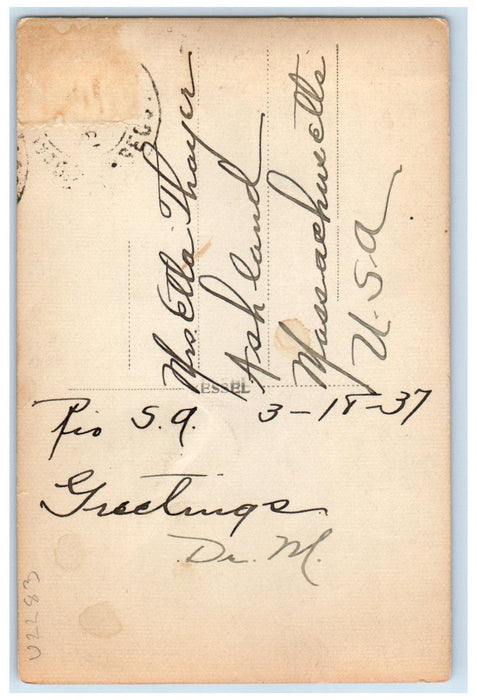 Mrs. Etta Thayer
Ashland
Massachusetts
U.S.A
Rio S.A. 3-18-37
Greetings
Dr. M.
U2283